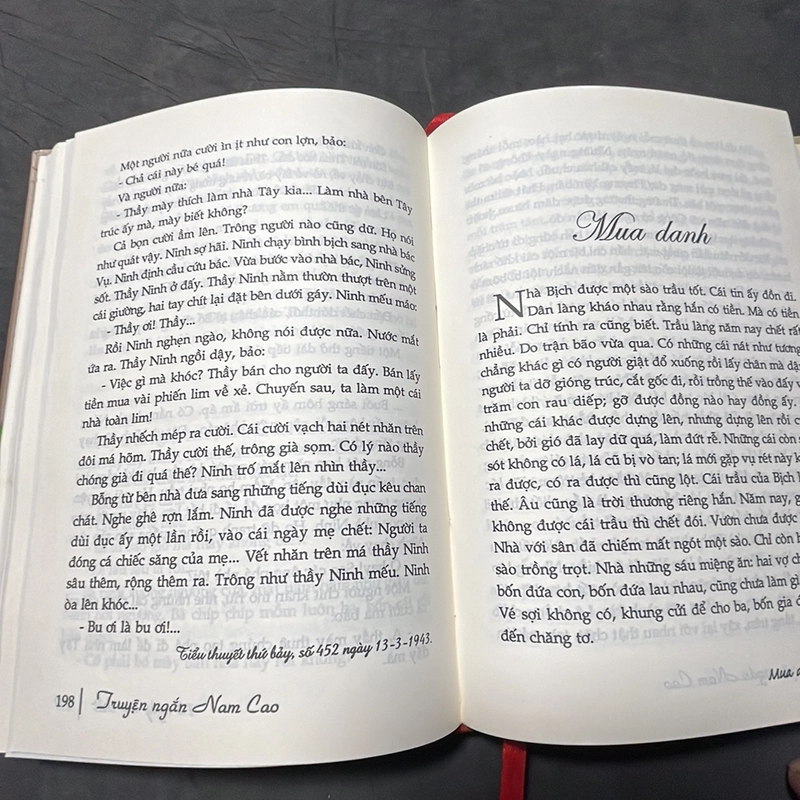 Một người nữa cười ìn ịt như con lợn, bảo:
- Chả cái này bé quá!
Và người nữa:
- Thầy mày thích làm nhà Tây kia... Làm nhà bên Tây
trúc ấy mà, mày biết không?
Cả bọn cười ầm lên. Trông người nào cũng dữ. Họ nói
như quát vậy. Ninh sợ hãi. Ninh chạy bình bịch sang nhà bác
Vụ. Ninh định cầu cứu bác. Vừa bước vào nhà bác, Ninh sửng
sốt. Thầy Ninh ở đấy. Thầy Ninh nằm thườn thượt trên một
cái giường, hai tay chít lại đặt bên dưới gáy. Ninh mếu máo:
- Thầy ơi! Thầy...
Rồi Ninh nghẹn ngào, không nói được nữa. Nước mắt
ứa ra. Thầy Ninh ngồi dậy, bảo:
- Việc gì mà khóc? Thầy bán cho người ta đấy. Bán lấy
tiền mua vài phiến lim về xẻ. Chuyến sau, ta làm một cái
nhà toàn lim!
Thầy nhếch mép ra cười. Cái cười vạch hai nét nhăn trên
đôi má hõm. Thầy cười thế, trông già sọm. Có lý nào thầy
chóng già đi quá thế? Ninh trố mắt lên nhìn thầy...
Bỗng từ bên nhà đưa sang những tiếng dùi đục kêu chan
chát. Nghe ghê rợn lắm. Ninh đã được nghe những tiếng
dùi đục ấy một lần rồi, vào cái ngày mẹ chết: Người ta
đóng cá chiếc săng của mẹ... Vết nhăn trên má thầy Ninh
sâu thêm, rộng thêm ra. Trông như thầy Ninh mếu. Ninh
òa lên khóc...
- Bu ơi là bu ơi!...
Tiểu thuyết thứ bảy, số 452 ngày 13-3-1943.
198 | Truyện ngắn Nam Cao
Mua danh
Nhà Bịch được một sào trầu tốt. Cái tin ấy đồn đi.
Dân làng kháo nhau rằng hắn có tiền. Mà có tiền
là phải. Chỉ tính ra cũng biết. Trầu làng năm nay chết rất
nhiều. Do trận bão vừa qua. Có những cái nát như tương
chẳng khác gì có người giật đổ xuống rồi lấy chân mà
người ta dỡ gióng trúc, cắt gốc đi, rồi trồng thế vào đấy
trăm con rau diếp; gỡ được đồng nào hay đồng ấy.
những cái khác được dựng lên, nhưng dựng lên rồi
chết, bởi gió đã lay dữ quá, làm đứt rễ. Những cái còn
sót không có lá, lá cũ bị vò tan; lá mới gặp vụ rét này
ra được, có ra được thì cũng lột. Cái trầu của Bịch
thế. Âu cũng là trời thương riêng hắn. Năm nay,
không được cái trầu thì chết đói. Vườn chưa được
Nhà với sân đã chiếm mất ngót một sào. Chỉ còn
sào trồng trọt. Nhà những sáu miệng ăn: hai vợ
bốn đứa con, bốn đứa lau nhau, cũng chưa làm
Vé sợi không có, khung cửi để cho ba, bốn gia
đến chăng tơ.
Mua